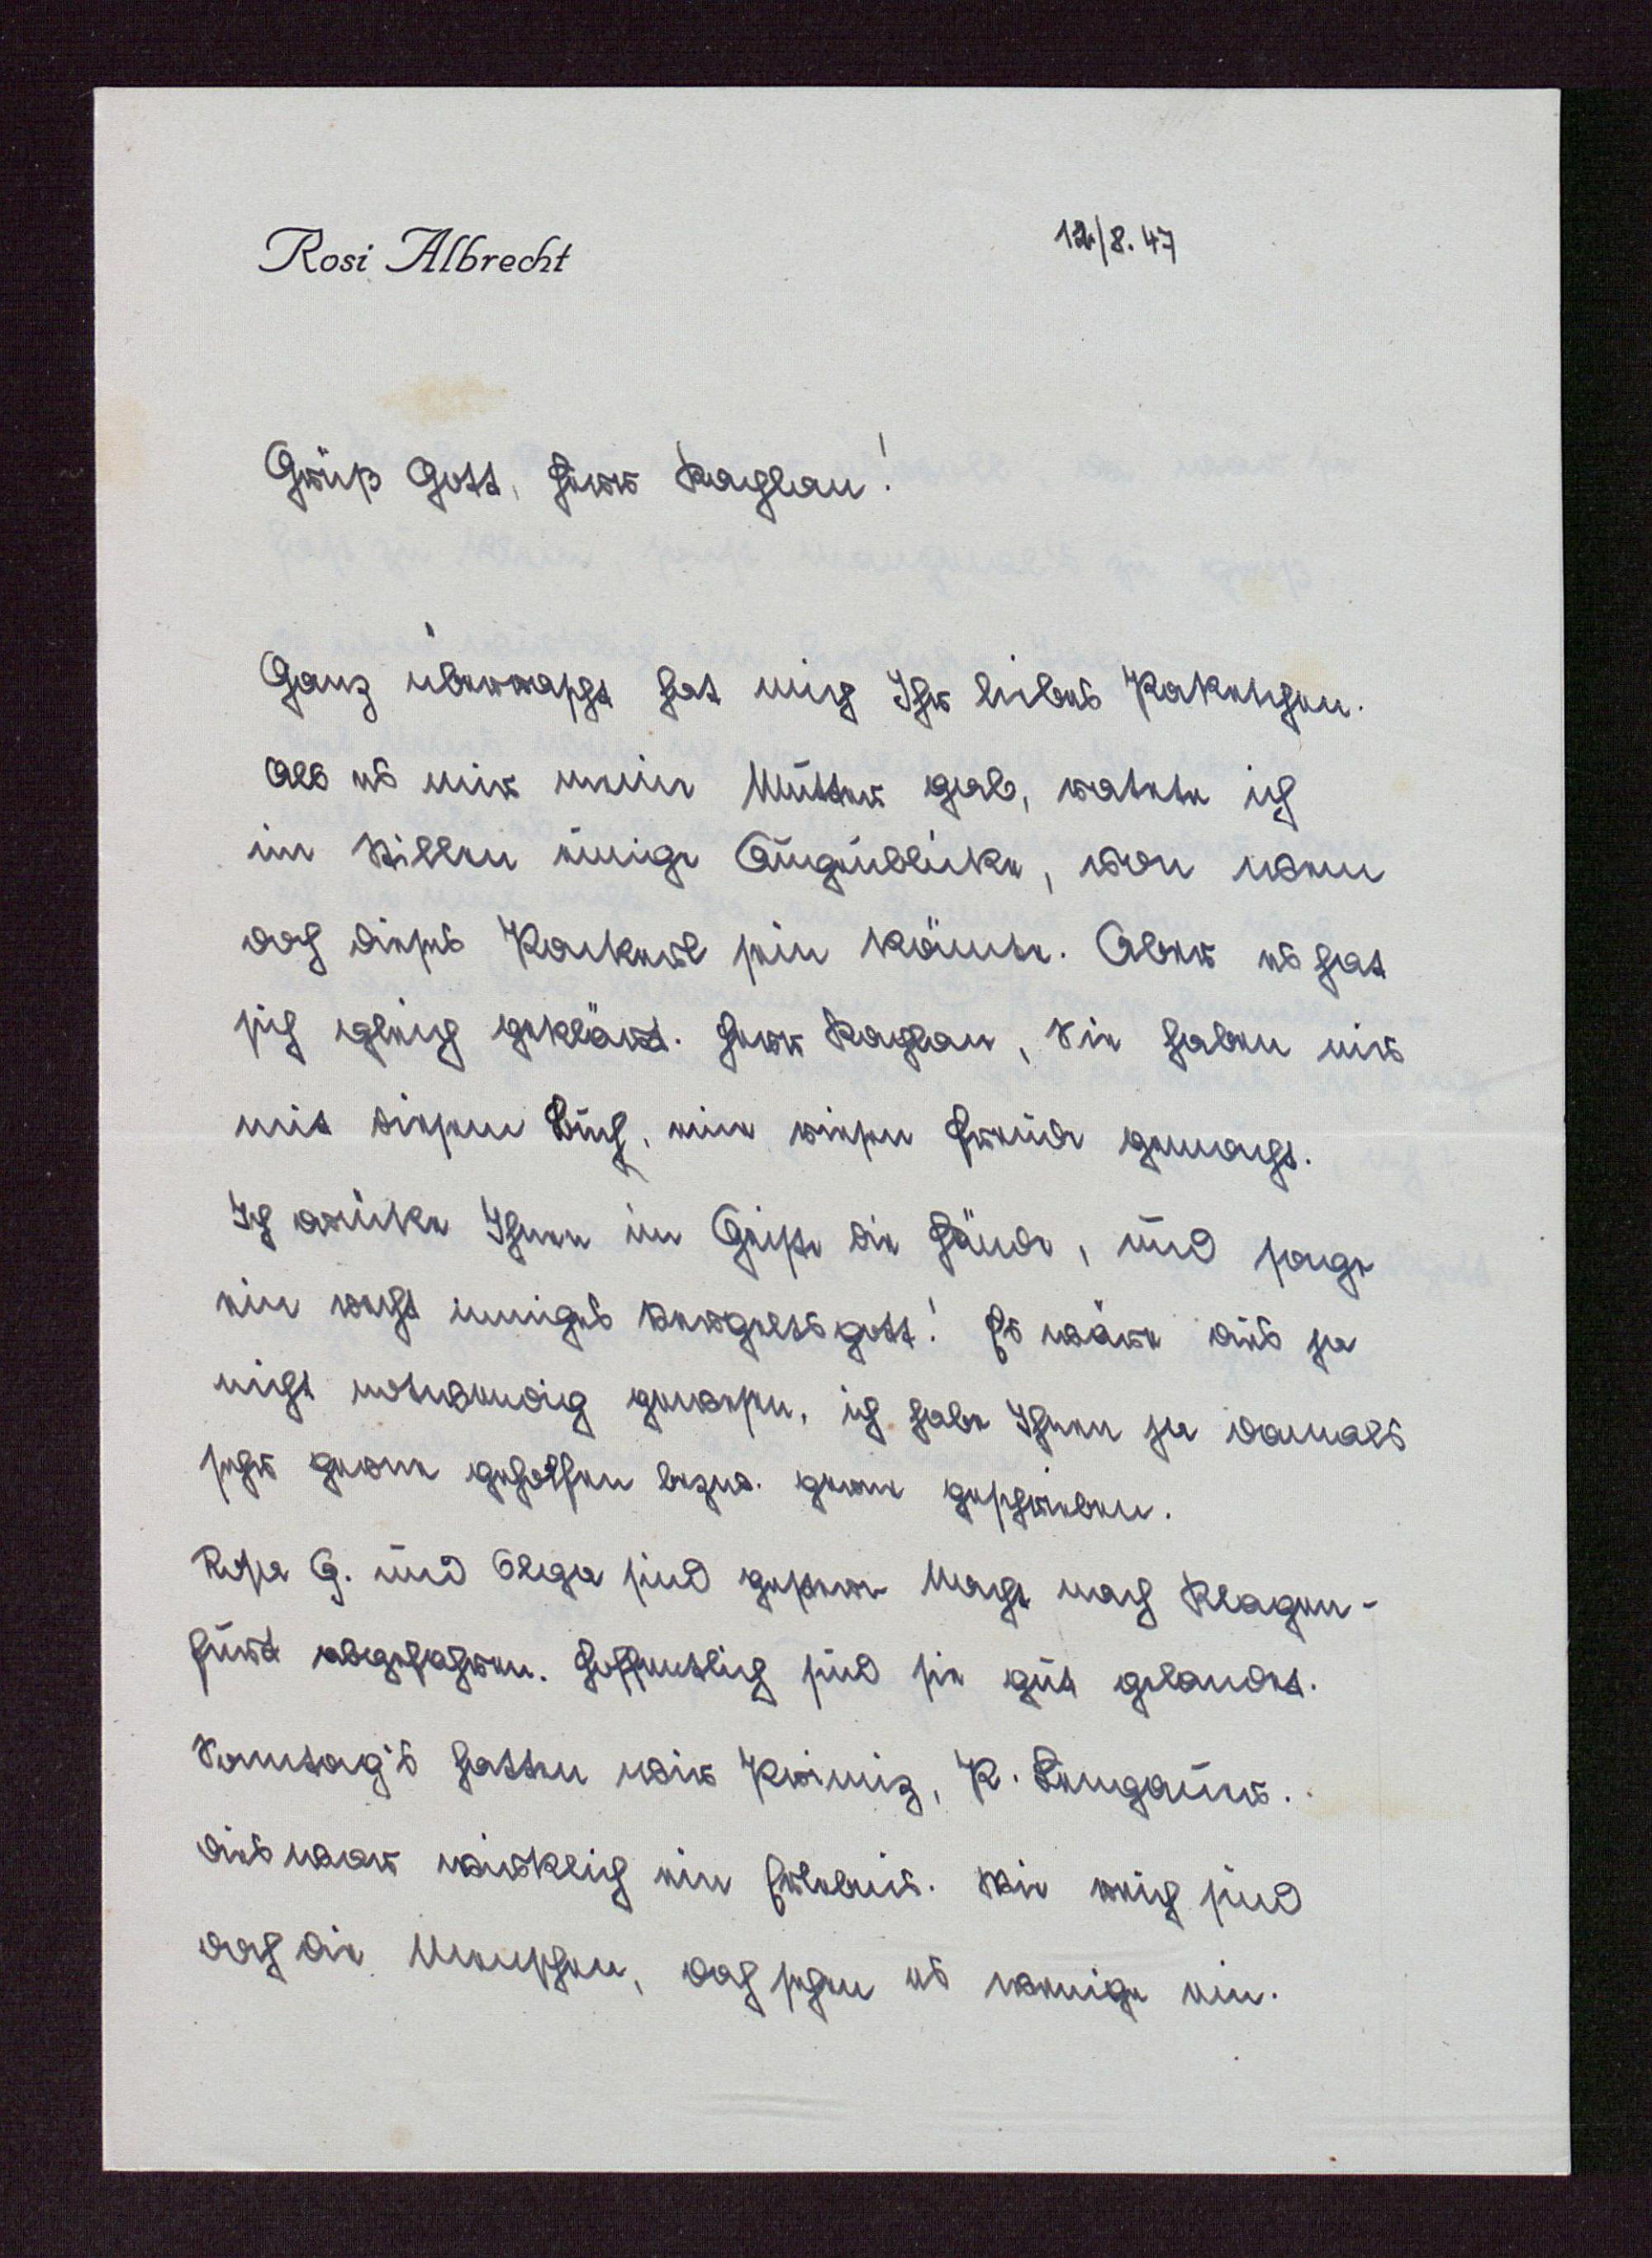 Rosi Albrecht
12/8.47
Grüß Gott, Herr Kaghlan!
Ganz überrascht hat mich Ihr liebes Paketchen.
Als es mir meine Mutter gab, ratete ich
im Stillen einige Augenblicke, von wem
doch dieses Packerl sein könnte. Aber es hat
sich gleich geklärt. Herr Kaghlan, Sie haben mir
mit diesem Buch, eine riesen Freude gemacht.
Ich drücke Ihnen im Geiste die Hände, und sage
ein recht inniges Vergeltsgott! Es wäre dies ja
nicht notwendig gewesen, ich habe Ihnen ja damals
sehr gerne geholfen bezw. gerne geschrieben.
Rosa G. und Olga sind gestern Nacht nach Klagen-
furt abgefahren. Hoffentlich sind sie gut gelandet.
Sonntag's hatten wir Primiz, P. Longaur.
dies war wirklich ein Erlebnis. Wie reich sind
doch die Menschen, doch sehen es wenige ein.